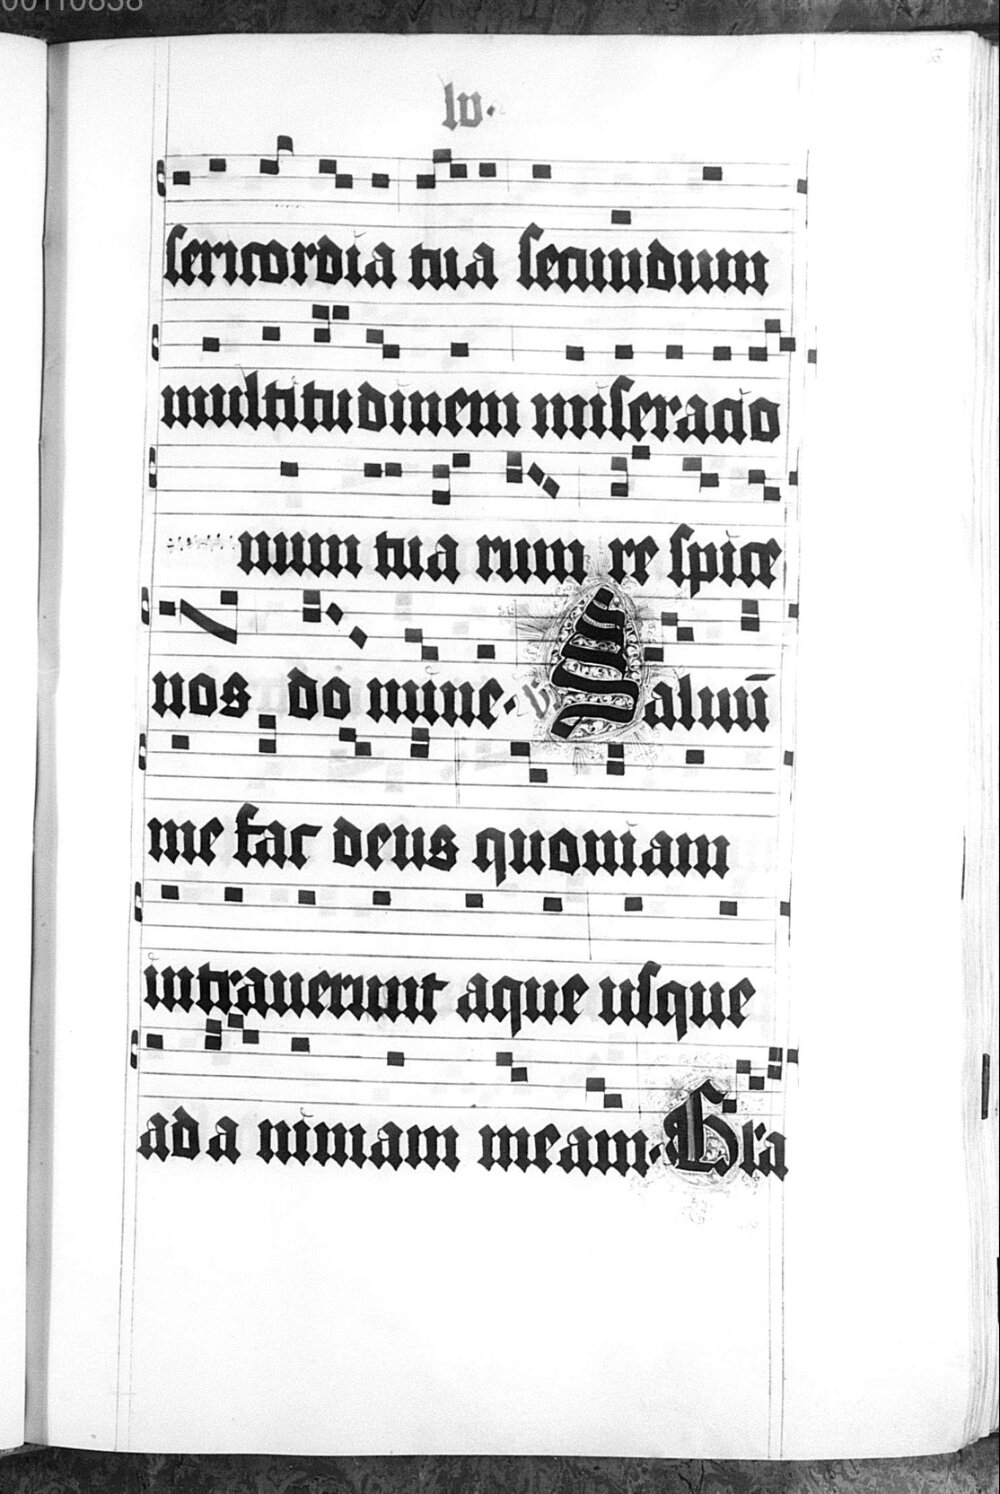 00110838
56
lv.
sericordia tua secundum
multitudinem miseratio
num tua rum re spice
nos do mine. v. Saluū
me fac deus quoniam
intrauerunt aque usque
ad a nimam meam. Gla